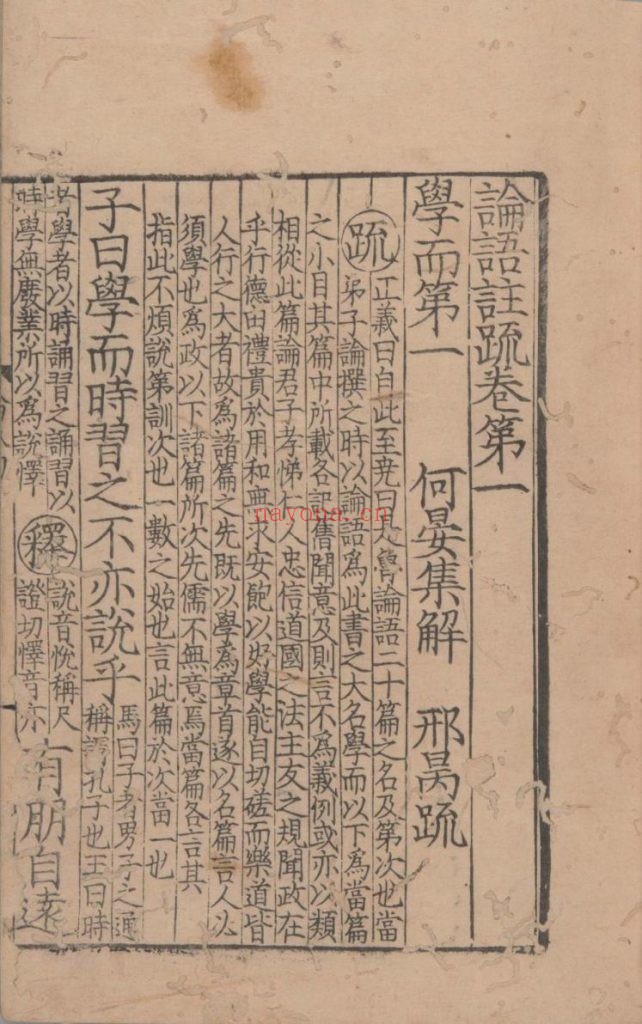 論語註疏卷第一
學而第一 何晏集解 邢昺疏
疏 正義曰自此至堯曰是魯論語二十篇之名及第次也當
弟子論撰之時以論語爲此書之大名學而以下爲當篇
之小目其篇中所載各記舊聞意及則言不爲義例或亦以類
相從此篇論君子孝悌仁人忠信道國之法主友之規聞政在
乎行德由禮貴於用和無求安飽以好學能自切磋而樂道皆
人行之大者故爲諸篇之先既以學爲章首遂以名篇言人必
須學也爲政以下諸篇所次先儒不無意焉當篇各言其
指此不煩說第訓次也一數之始也言此篇於次當一也
子曰學而時習之不亦說乎
馬曰子者男子之通
稱謂孔子也王曰時
者學者以時誦習之誦習以
時學無廢業所以爲說懌
釋 說音悅稱尺
證切懌音亦
有朋自遠
nayona.cn